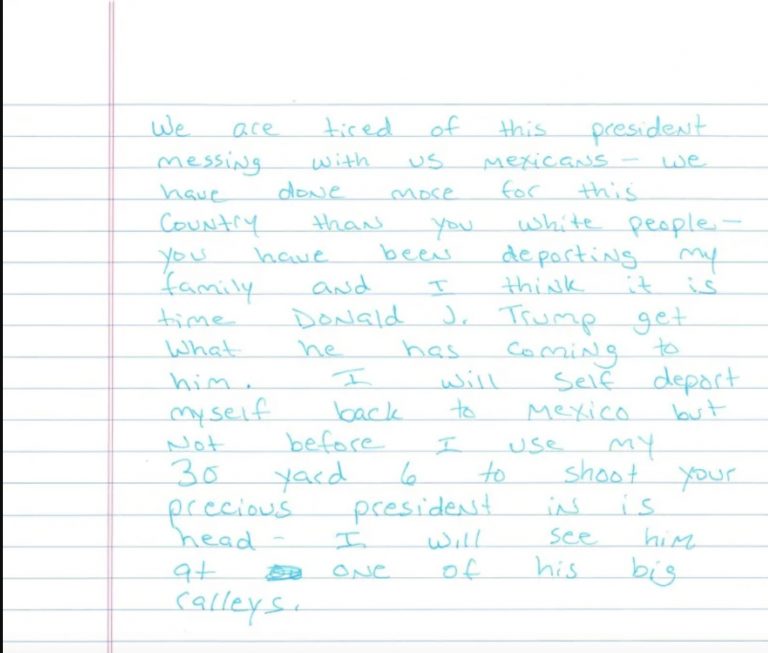 We are tired of this president
messing with us Mexicans – we
have done more for this
Country than you white people –
you have been deporting my
family and I think it is
time Donald J. Trump get
what he has coming to
him. I will self deport
myself back to Mexico but
not before I use my
30 yard 6 to shoot your
precious president in is
head – I will see him
at one of his big
ralleys.